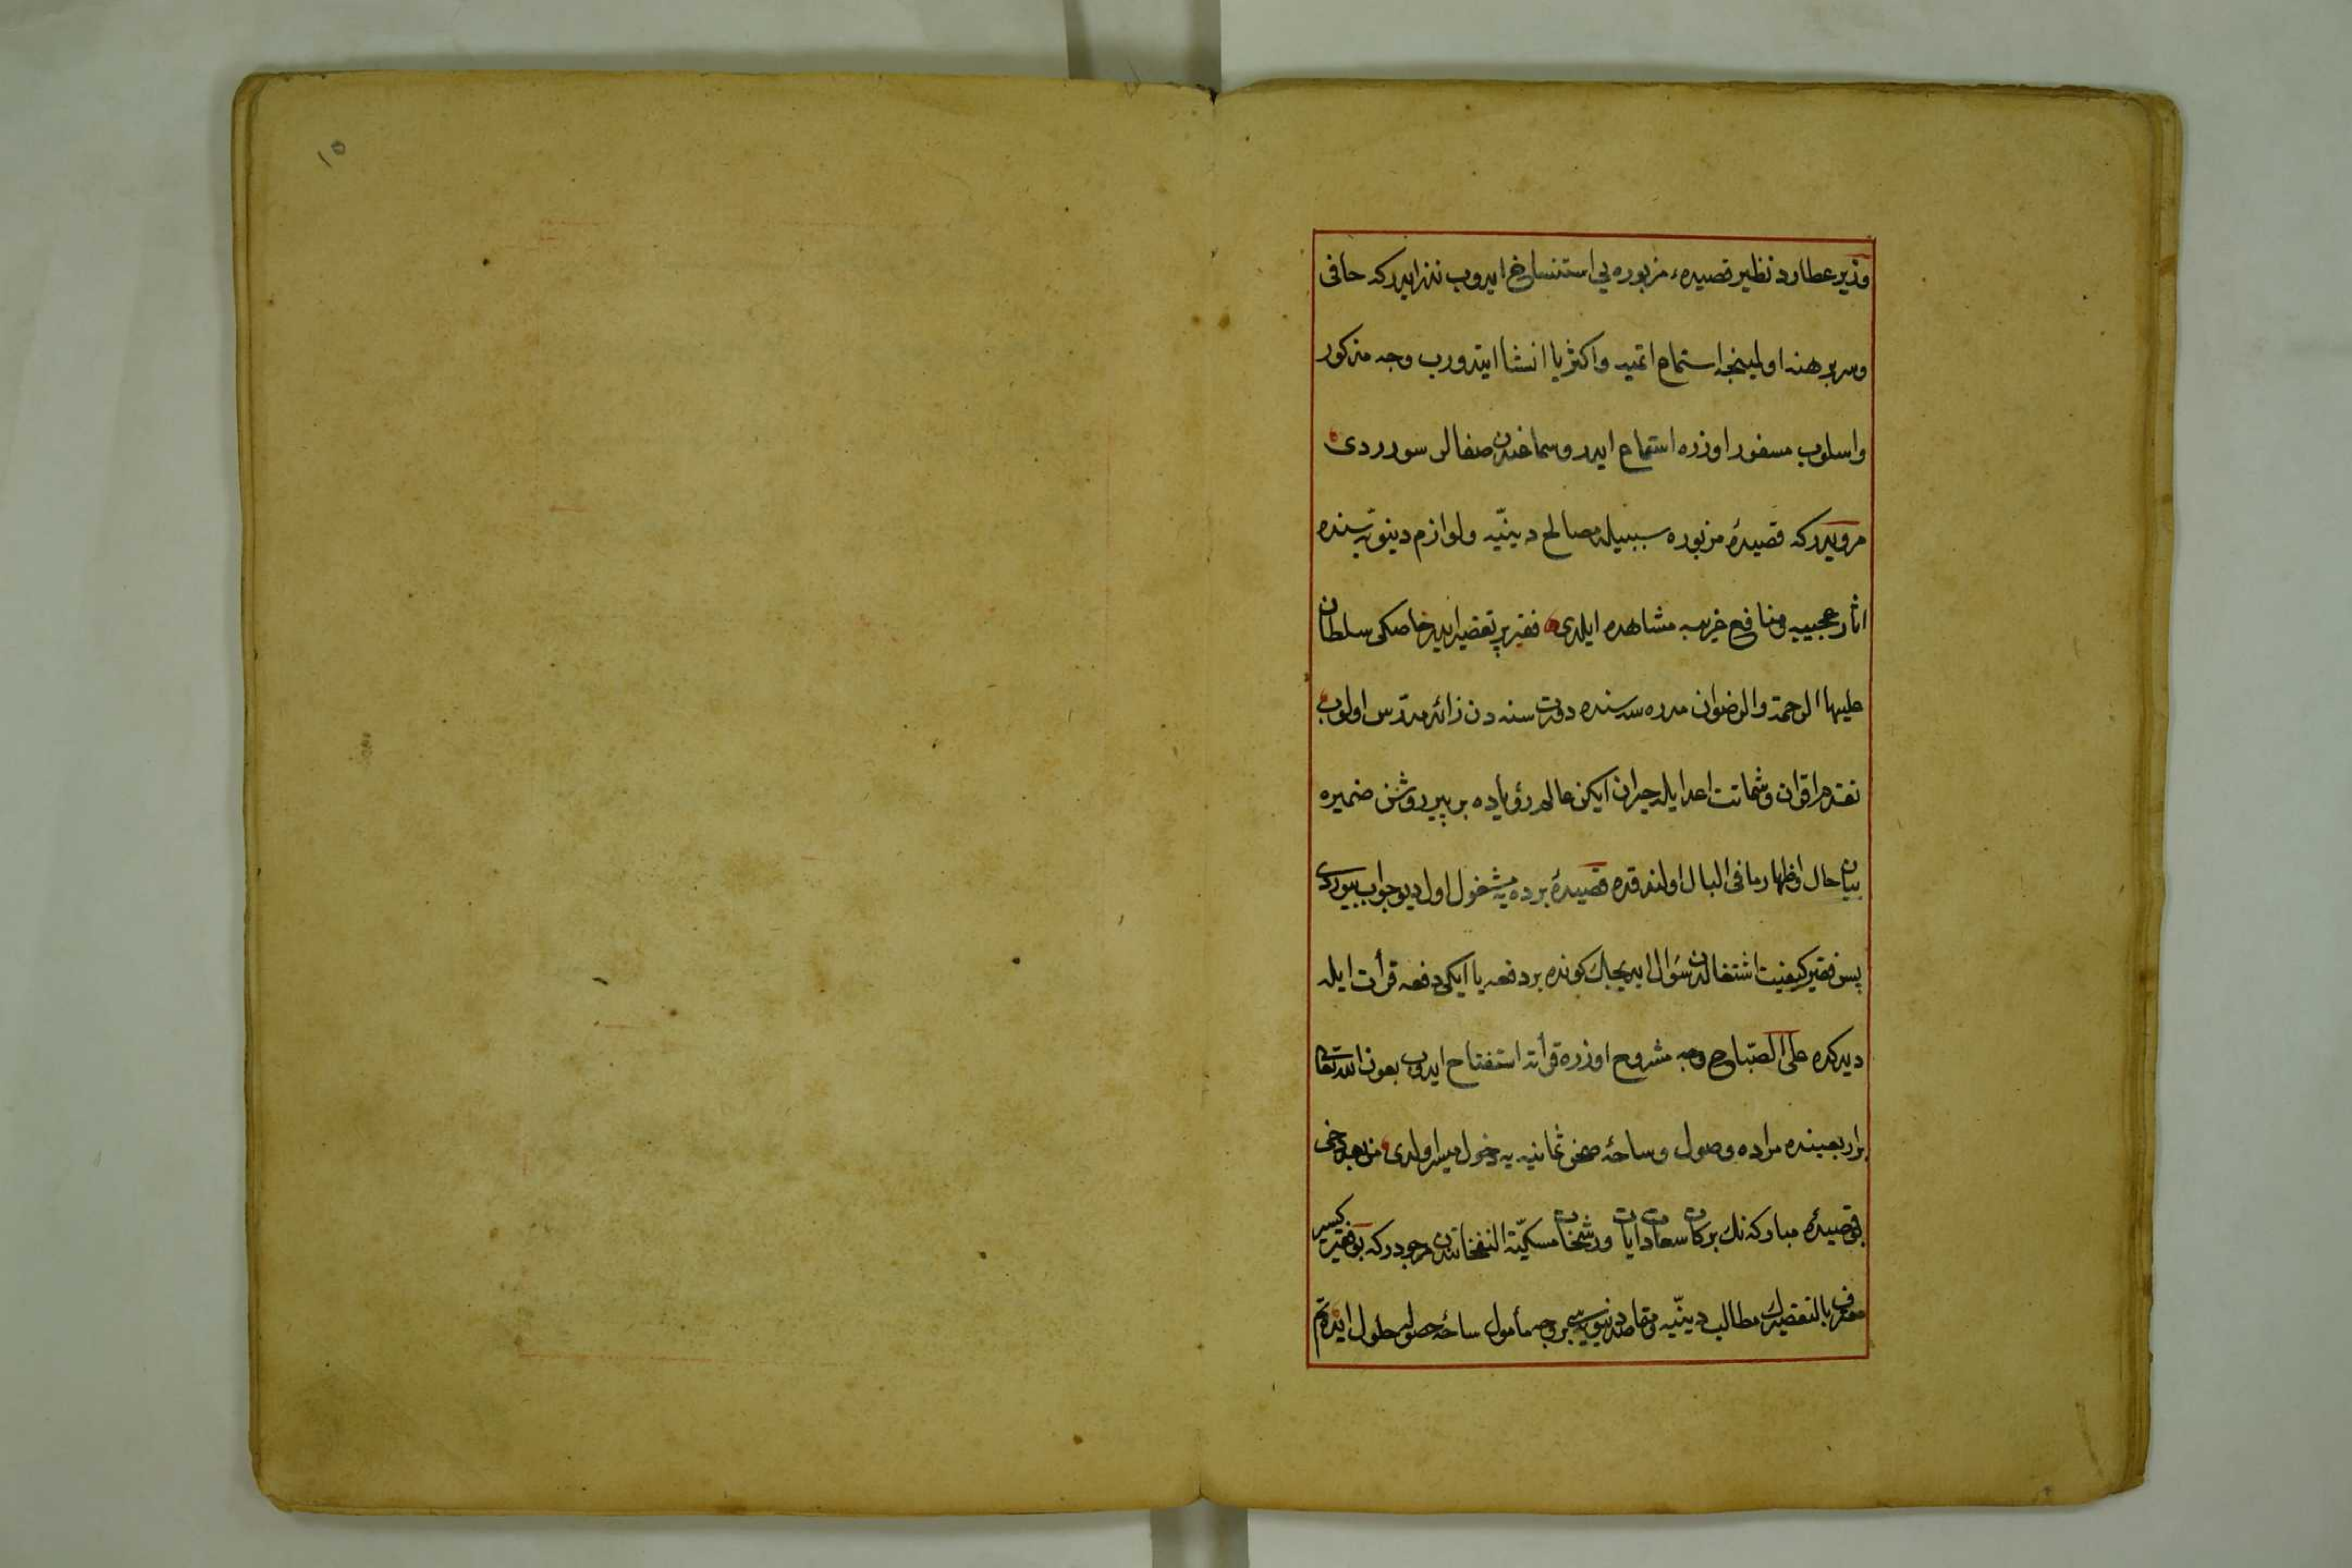 وزیر عطارد نظیر قصیده‌ء مزبوره یی استنساخ ایدوب نذر ایدر که حافی
وسر برهنه اولمینجه استماع اتمیه واکثریا انشا ایتدورب وجه مذکور
واسلوب مسفور اوزره استماع ایدر وسماعندن صفالر سورردی
مرویدر که قصیدۀ مزبوره سببیله مصالح دینیّه ولوازم دینویّه سنده
اثار عجیبه ومنافع غریبه مشاهده ایلدی فقیر پر تقصیر ایدر خاصکی سلطان
علیها الرحمة والرضوان مدره سه سنده دورت سنه دن زائد مدرّس اولوب
تقدم اقران وشماتت اعدا یله حیران ایکن عالم رؤیاده بر پیر روشن ضمیره
بیان حال واظهار ما فی البال اولندقده قصیدۀ برده یه مشغول اول دیو جواب بیوردی
پس فقیر کیفیت اشتغالدن سؤال ایدیجك کونده بر دفعه یا ایکی دفعه قرأت ایله
دیدکده علی الصباح وجه مشروح اوزره قرأته استفتاح ایدوب بعون الله تعالی
بر اربعینده مراده وصول وساحۀ صحن ثمانیه یه دخول میسر اولدی من بعد دخی
بو قصیدۀ مبارکه نك برکات سعادات ایات ورشحات مسکیّة النفحاتندن مرجودر که بو فقیر کسیر
معترف بالتقصیرك مطالب دینیّه ومقاصد دنیویه سی بر وجه مأمول ساحۀ حصوله حلول ایده تم
١٥